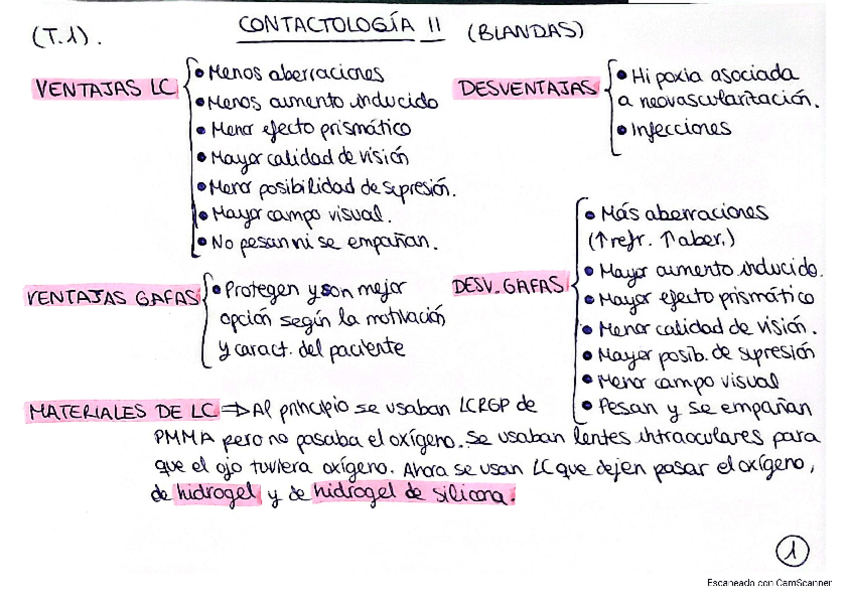 (T.1).
CONTACTOLOGÍA II (BLANDAS)
VENTAJAS LC
• Menos aberraciones
• Menos aumento inducido
• Menor efecto prismático
• Mayor calidad de visión
• Menor posibilidad de supresión.
• Mayor campo visual.
• No pesan ni se empañan.
DESVENTAJAS
• Hipoxia asociada
a neovascularización.
• Infecciones
VENTAJAS GAFAS
• Protegen y son mejor
opción según la motivación
y caract. del paciente
DESV. GAFAS
• Más aberraciones
(↑refr. ↑aber.)
• Mayor aumento inducido.
• Mayor efecto prismático
• Menor calidad de visión.
• Mayor posib. de supresión
• Menor campo visual
• Pesan y se empañan
MATERIALES DE LC ⇒ Al principio se usaban LCRGP de
PMMA pero no pasaba el oxígeno. Se usaban lentes intraoculares para
que el ojo tuviera oxígeno. Ahora se usan LC que dejen pasar el oxígeno,
de hidrogel y de hidrogel de silicona.
1
Escaneado con CamScanner